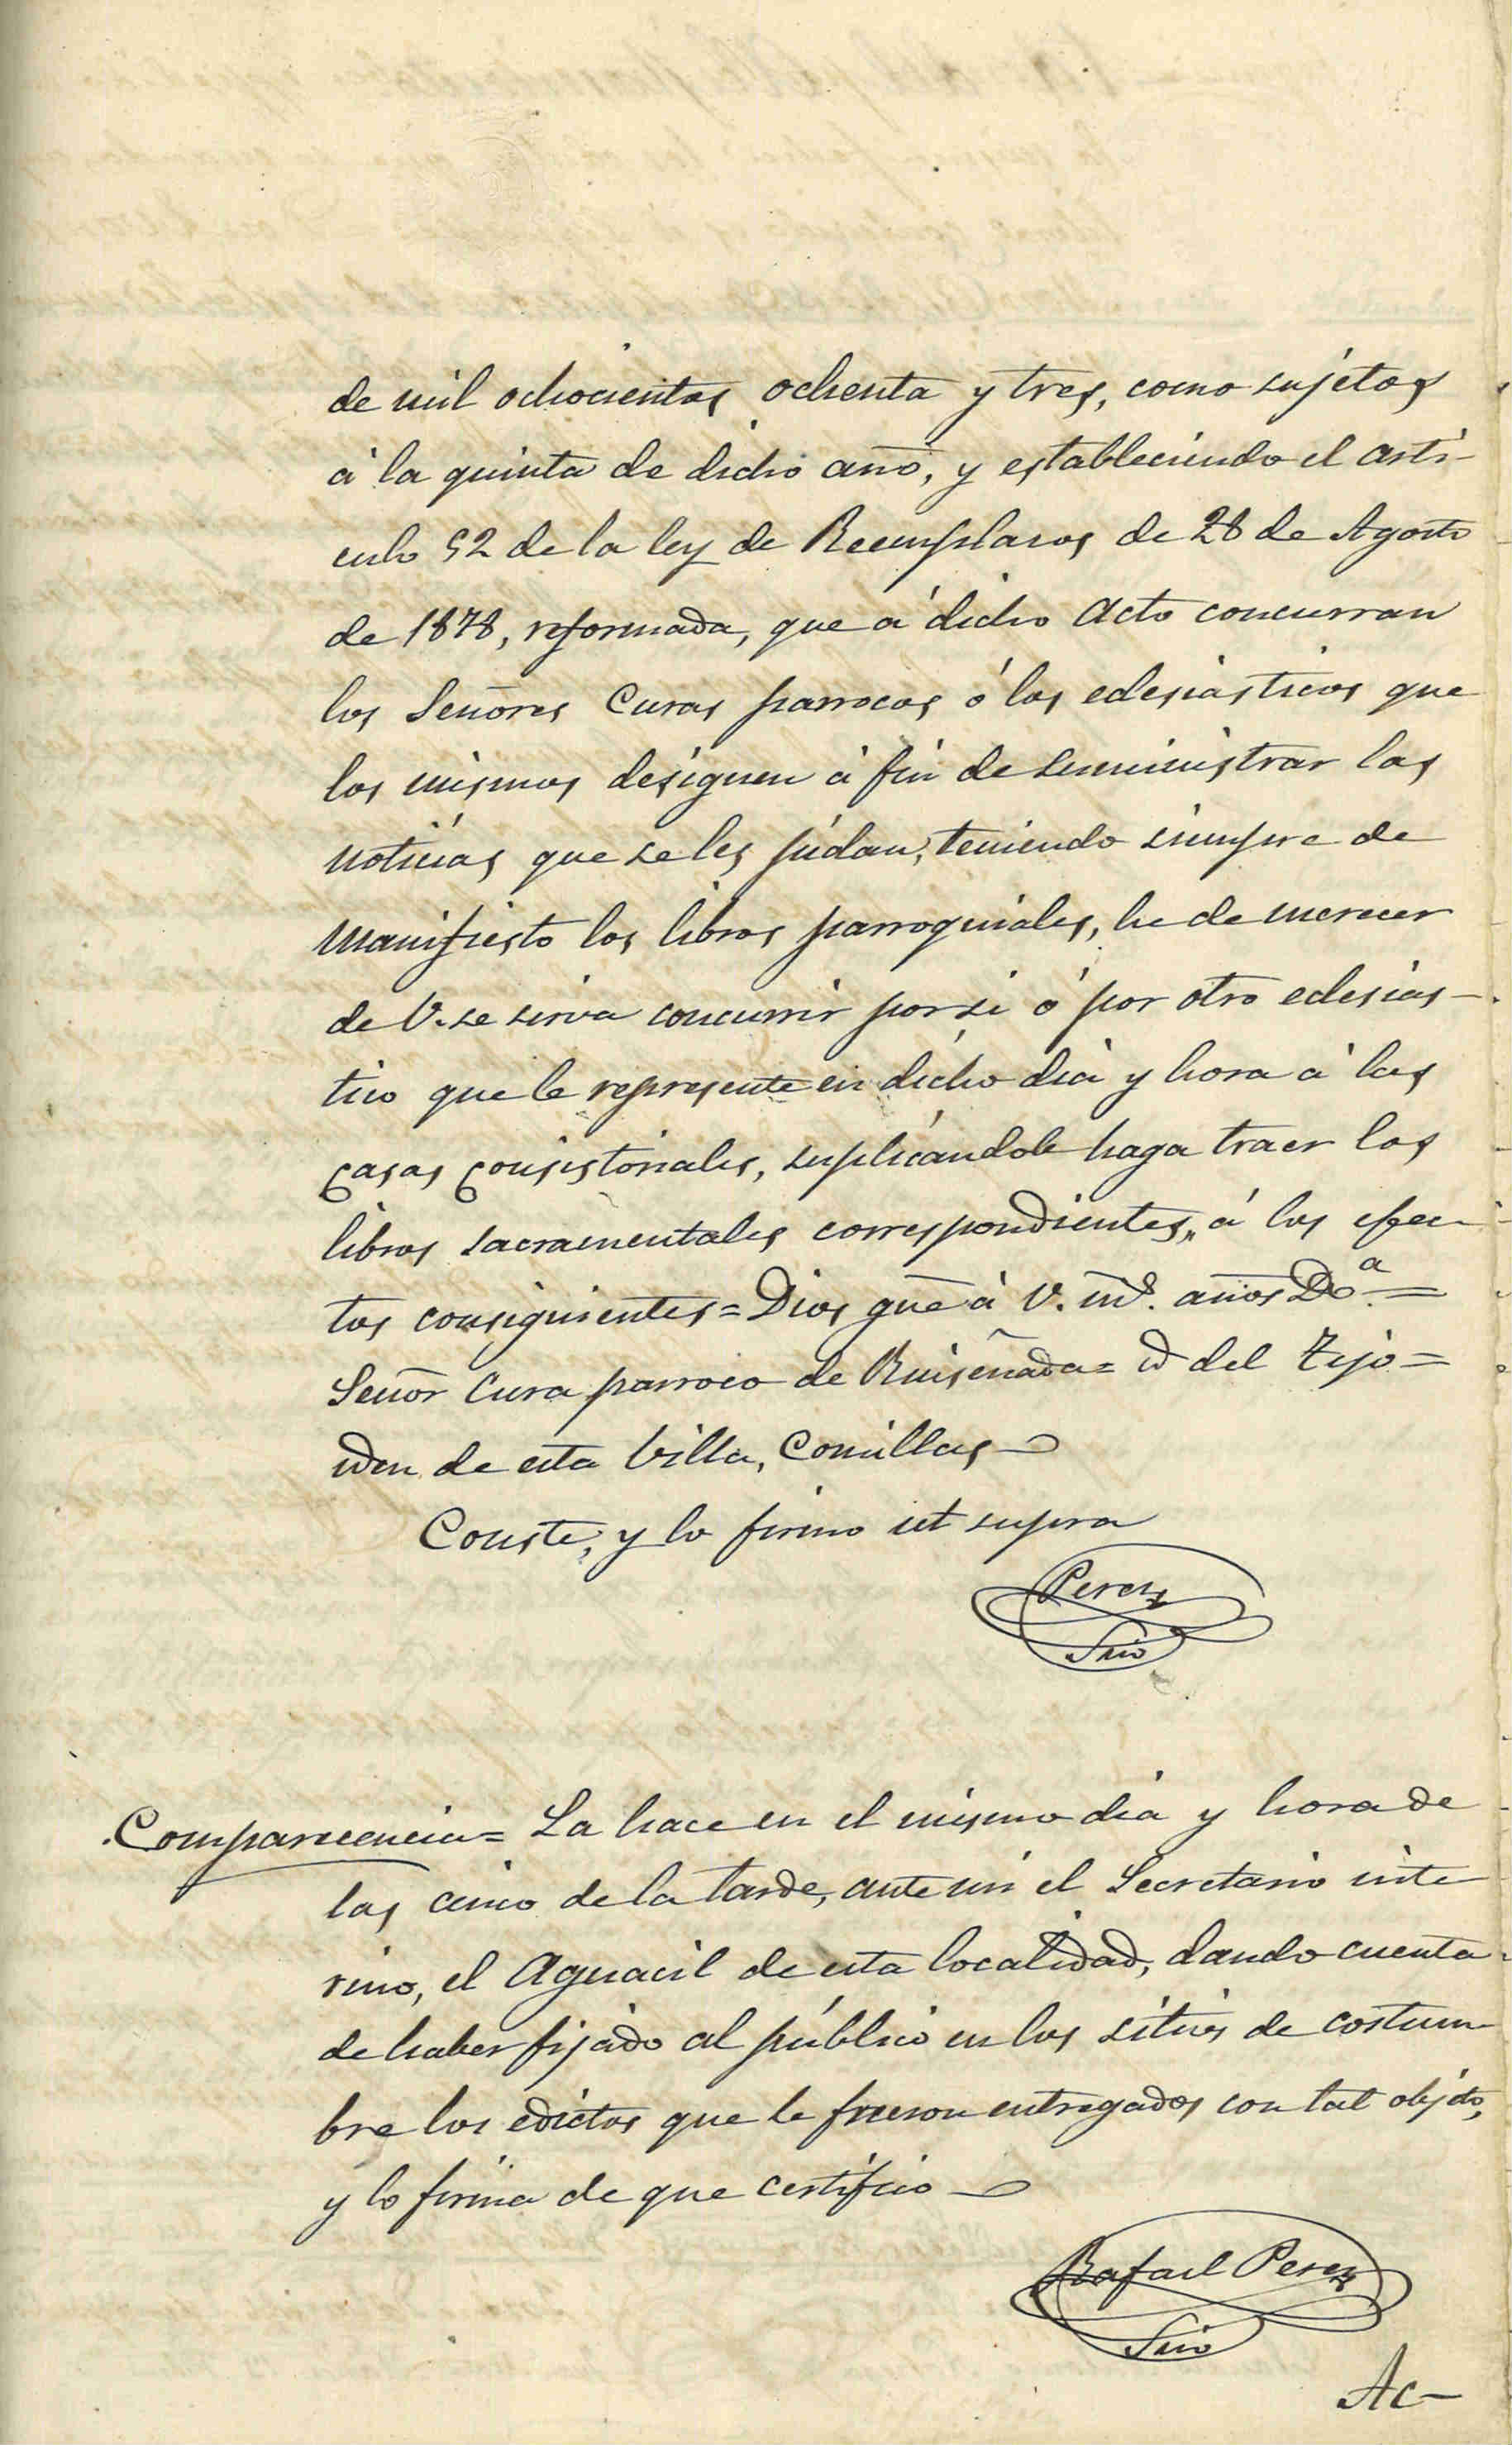 de mil ochocientos ochenta y tres, como sujetos
á la quinta de dicho año, y estableciendo el artí-
culo 52 de la ley de Reemplazos de 28 de Agosto
de 1878, reformada, que á dicho acto concurran
los Señores Curas parrocos ó los eclesiásticos que
los mismos designen á fin de suministrar las
noticias que se les pidan, teniendo siempre de
manifiesto los libros parroquiales, he de merecer
de V. se sirva concurrir por si ó por otro eclesiás-
tico que le represente en dicho dia y hora á las
casas consistoriales, suplicándole haga traer los
libros sacramentales correspondientes,, á los efec-
tos consiguientes = Dios gue á V. ms. años Da =
Señor Cura parroco de Ruiseñada = id del Tejo =
idem de esta Villa, Comillas
Conste, y lo firmo ut supra
Perez
Srio
Comparecencia = La hace en el mismo dia y hora de
las cinco de la tarde, ante mi el Secretario inte
rino, el Aguacil de esta localidad, dando cuenta
de haber fijado al público en los sitios de costum
bre los edictos que le fueron entregados con tal objeto,
y lo firma de que certifico
Rafael Perez
Srio
Ac-